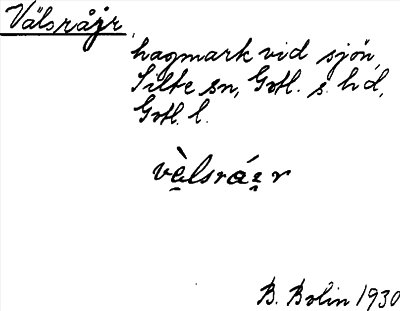 Välsråjr,
hagmark vid sjön,
Silte sn, Gotl. s. hd,
Gotl. l.
vàlsráɪr
B. Bolin 1930